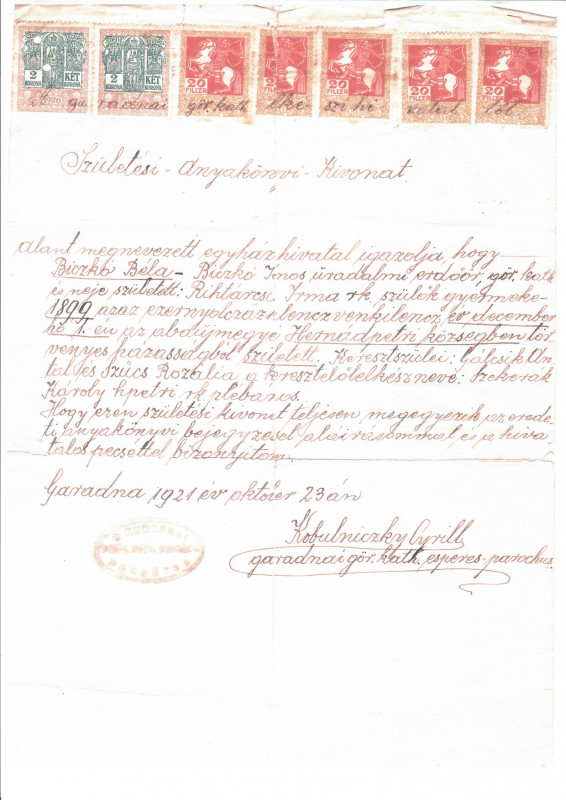 2 KORONA KÉT KORONA 2 KORONA KÉT KORONA 20 FILLÉR 20 FILLÉR 20 FILLÉR 20 FILLÉR 20 FILLÉR
A ga radnai gör. kath. lke- szi hi vatal
Születési - Anyakönyvi - Kivonat.
Alant megnevezett egyház hivatal igazolja, hogy
Biczkó Béla - Biczkó Imos uradalmi erdőőr gör. kath
és neje született: Rihtárcsi Irma rk. szülők gyermeke -
1899 azaz ezernyolczázkilenczvenkilencz év december
hó 1.-én az abaújmegye Hernádpetri községben tör-
vényes házasságból született. Keresztszülei: Gálcsik An-
tal és Szűcs Rozália a keresztelő lelkész neve: Szekerák
Károly hpetri rk. plébános.
Hogy ezen születési kivonat teljesen megegyezik az erede-
ti anyakönyvi bejegyzésel aláirásommal és a hiva-
talos pecséttel bizonyitom.
Garadna 1921 év október 23 án
Kobulniczky Cyrill
garadnai gör. kath. esperes-parochus.